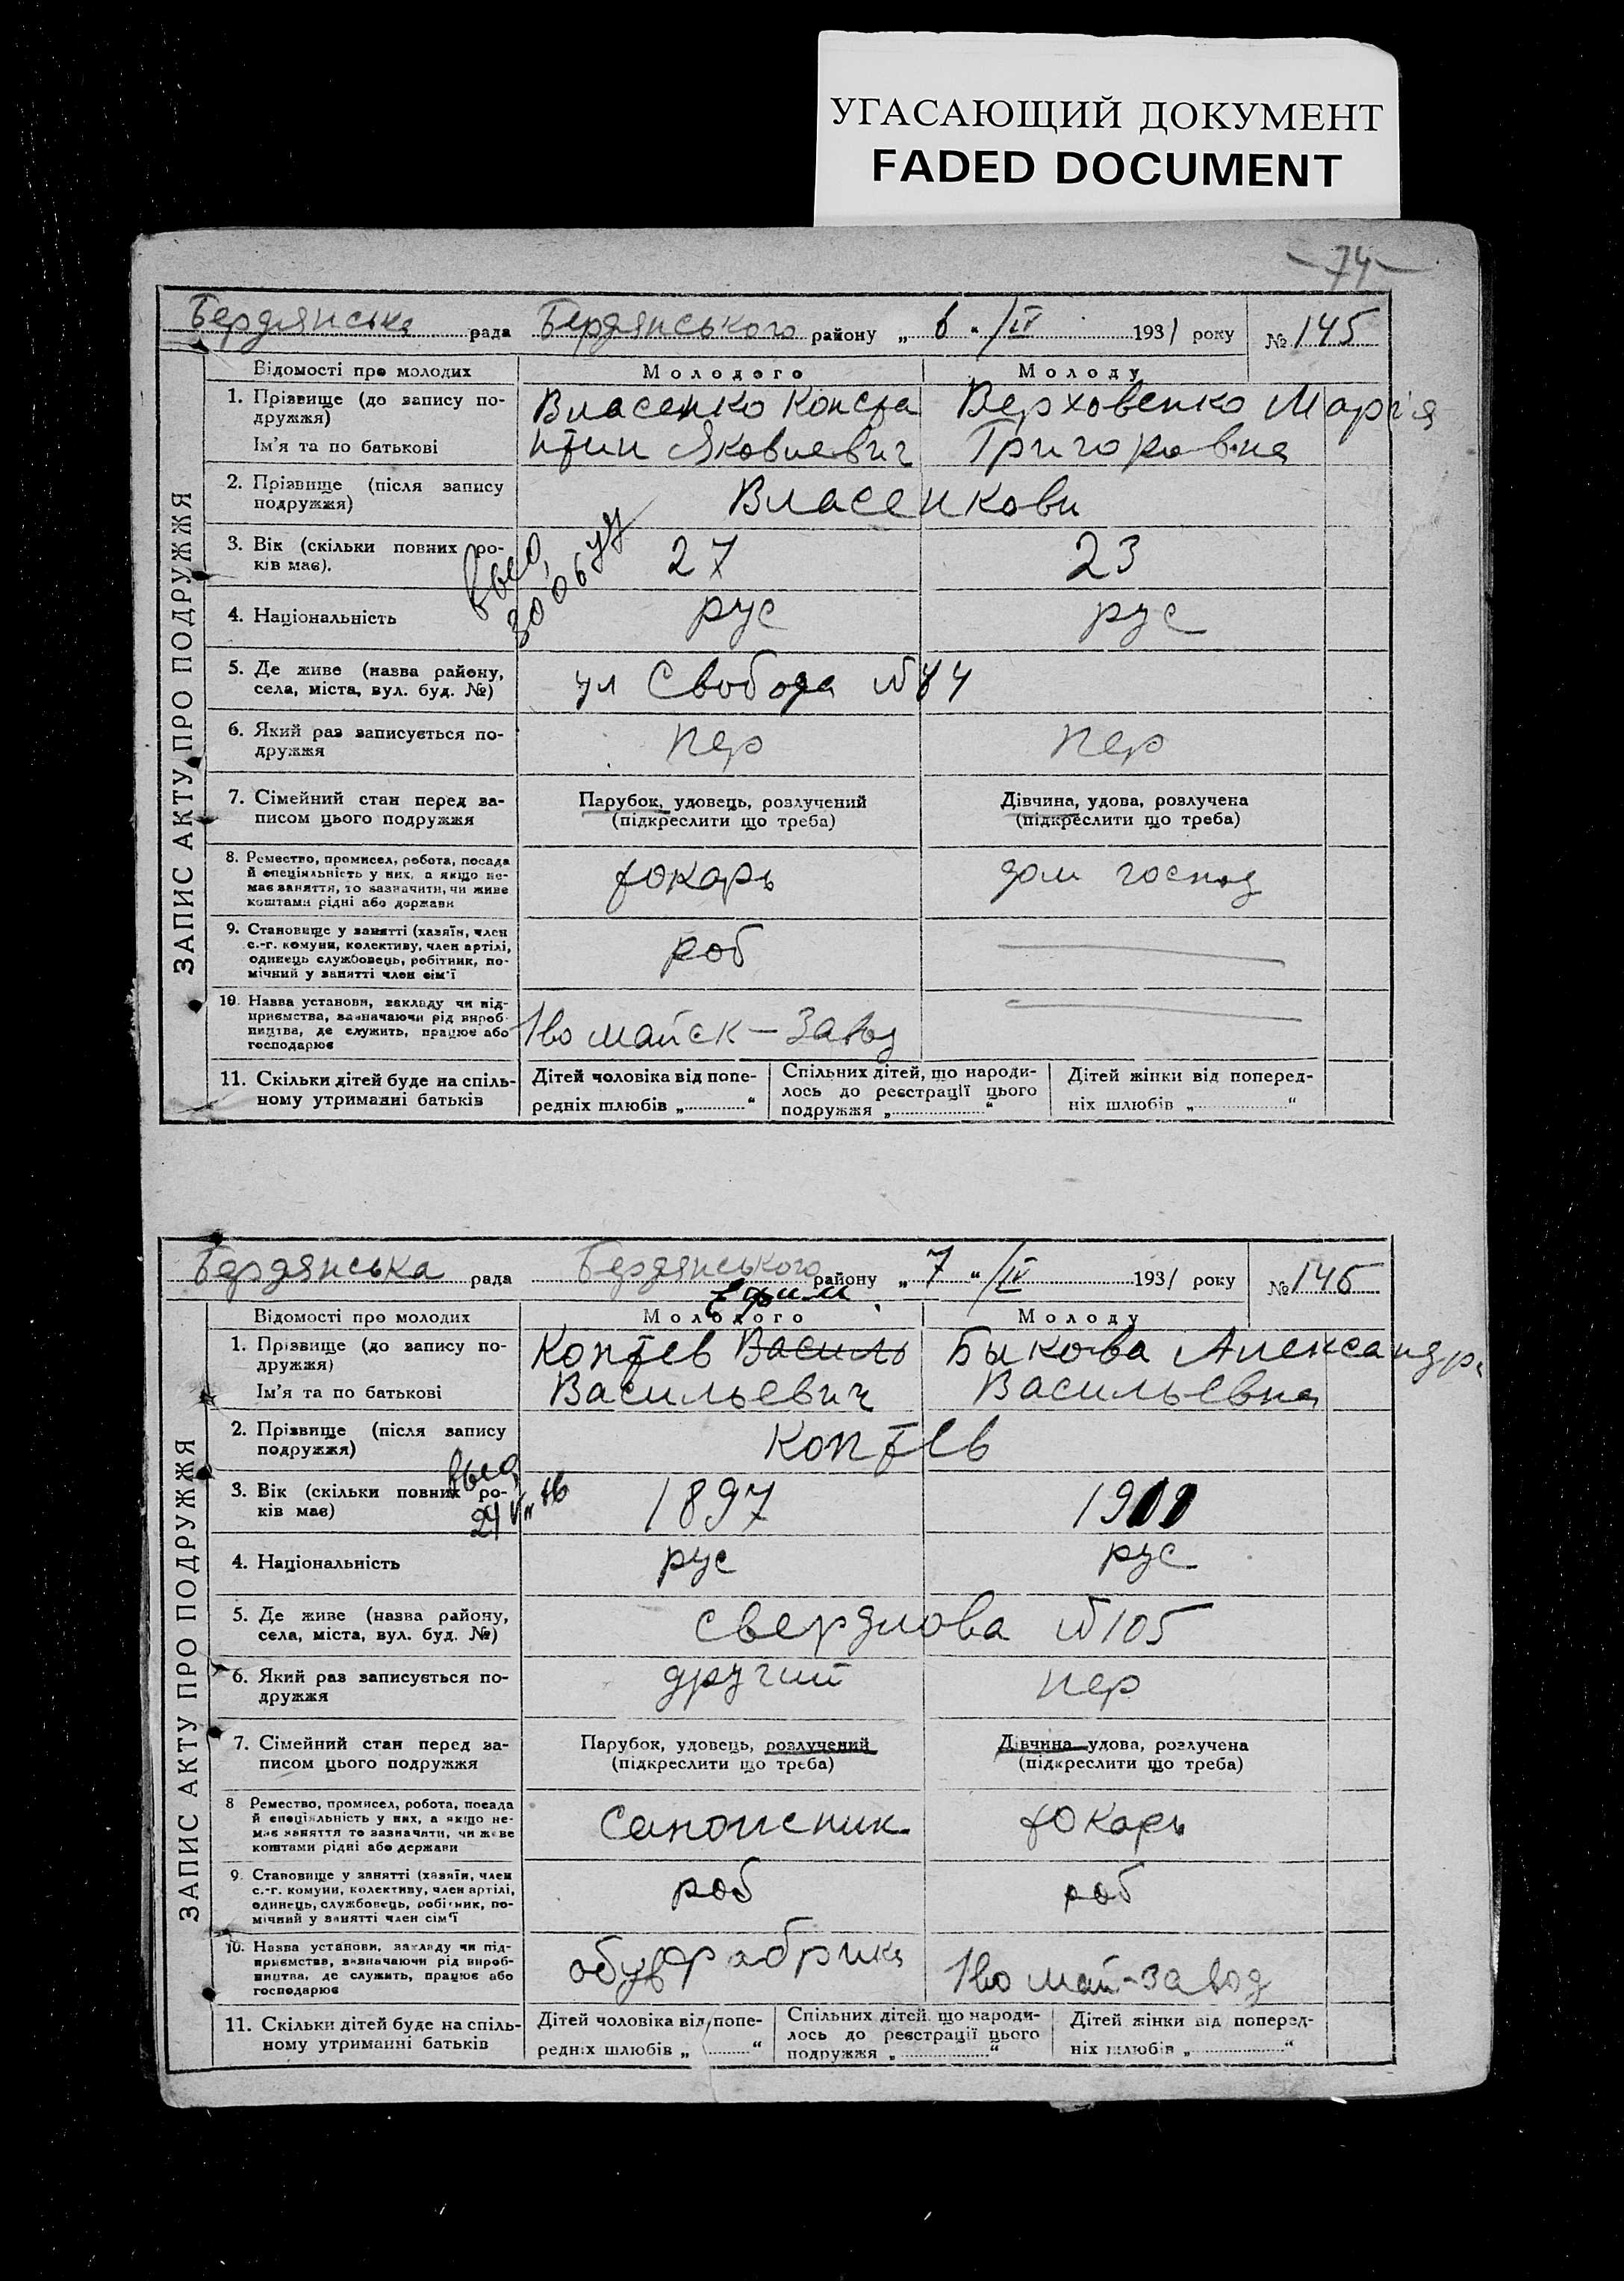 УГАСАЮЩИЙ ДОКУМЕНТ
FADED DOCUMENT
— 74 —
Бердянська рада Бердянського району „ 6 " /IV 1931 року № 145
Відомості про молодих Молодого Молоду
1. Прізвище (до запису по- Власенко Конста Верховенко Марія
дружжя)
Ім'я та по батькові нтин Яковлевич Григоровна
2. Прізвище (після запису Власенкови
подружжя)
3. Вік (скільки повних ро- 27 23
ків має).
30 06 77
4. Національність рус рус
5. Де живе (назва району, ул Свобода №
села, міста, вул. буд. №)
6. Який раз записується по- пер пер
дружжя
7. Сімейний стан перед за- Парубок, удовець, розлучений Дівчина, удова, розлучена
писом цього подружжя (підкреслити що треба) (підкреслити що треба)
8. Ремество, промисел, робота, посада
й спеціяльність у них, а якщо не- токарь дом господ
має заняття, то зазначити, чи живе
коштами рідні або держави
9. Становище у занятті (хазяїн, член
с.-г. комуни, колективу, член артілі, роб
одинець службовець, робітник, по-
мічний у занятті член сім'ї
10. Назва установи, закладу чи під-
приємства, зазначаючи рід вироб-
ництва, де служить, працює або 1во майск - завод
господарює
11. Скільки дітей буде на спіль- Дітей чоловіка від попе- Спільних дітей, що народи- Дітей жінки від поперед-
ному утриманні батьків редніх шлюбів „ “ лось до реєстрації цього ніх шлюбів „ “
подружжя „ “
ЗАПИС АКТУ ПРО ПОДРУЖЖЯ
Бердянська рада Бердянського району „ 7 “ /IV 1931 року № 146
Відомості про молодих Молодого Молоду
1. Прізвище (до запису по- Коптев Василь Быкова Александра
дружжя)
Ім'я та по батькові Васильевич Васильевна
2. Прізвище (після запису Коптев
подружжя)
3. Вік (скільки повних ро- 1897
ків має)
4. Національність рус рус
5. Де живе (назва району, Свердлова № 105
села, міста, вул. буд. №)
6. Який раз записується по- другий пер
дружжя
7. Сімейний стан перед за- Парубок, удовець, розлучений Дівчина удова, розлучена
писом цього подружжя (підкреслити що треба) (підкреслити що треба)
8 Ремество, промисел, робота, посада
й спеціяльність у них, а якщо не- токарь
має заняття то зазначити, чи живе
коштами рідні або держави
9. Становище у занятті (хазяїн, член
с.-г. комуни, колективу, член артілі, роб роб
одинець, службовець, робітник, по-
мічний у занятті член сім'ї
10. Назва установи, закладу чи під-
приємства, зазначаючи рід вироб- обувфабрика 1во май - завод
ництва, де служить, працює або
господарює
11. Скільки дітей буде на спіль- Дітей чоловіка від попе- Спільних дітей що народи- Дітей жінки від поперед-
ному утриманні батьків редніх шлюбів „ “ лось до реєстрації цього ніх шлюбів „ “
подружжя „ “
ЗАПИС АКТУ ПРО ПОДРУЖЖЯ